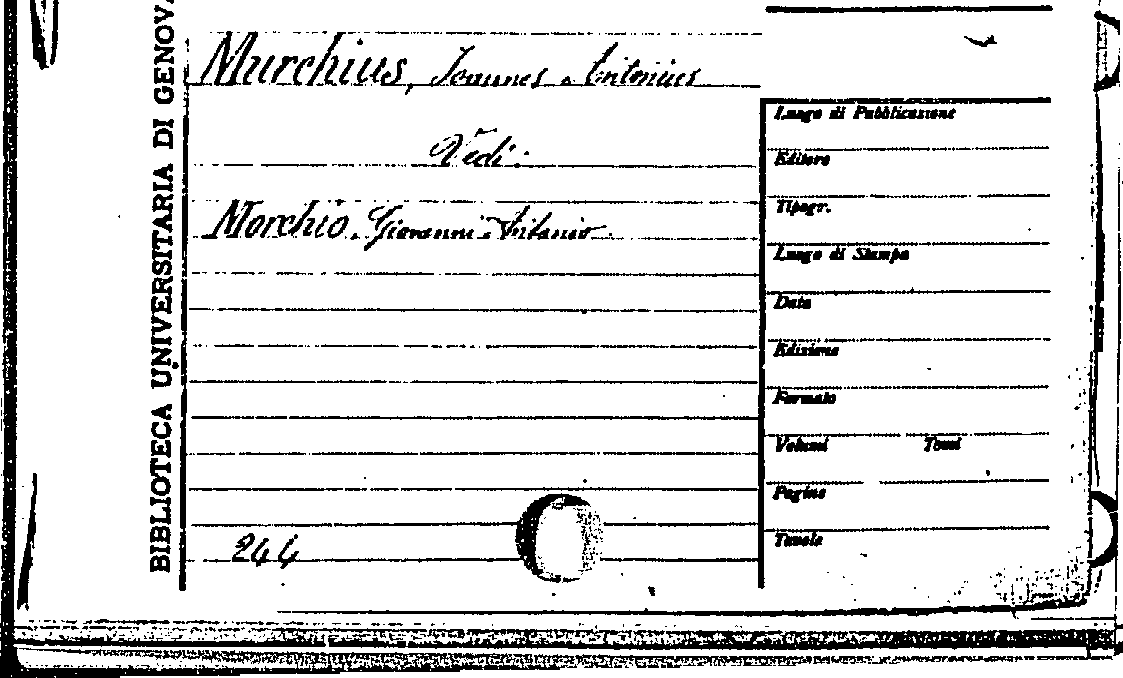 BIBLIOTECA UNIVERSITARIA DI GENOVA
Murchius, Joannes - Antonius
Vedi:
Morchio, Giovanni - Antonio.
244
Luogo di Pubblicazione
Editore
Tipogr.
Luogo di Stampa
Data
Edizione
Formato
Volumi Tomi
Pagine
Tavole